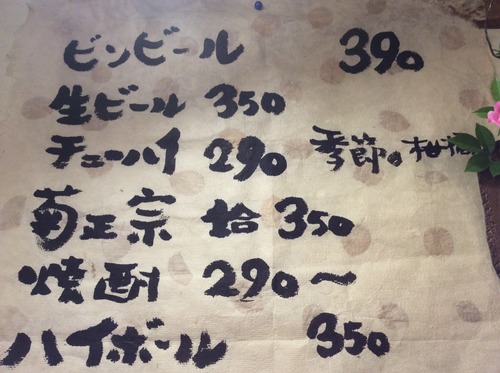 ビンビール 390
生ビール 350
チューハイ 290 季節の
菊正宗 350
焼酎 290〜
ハイボール 350